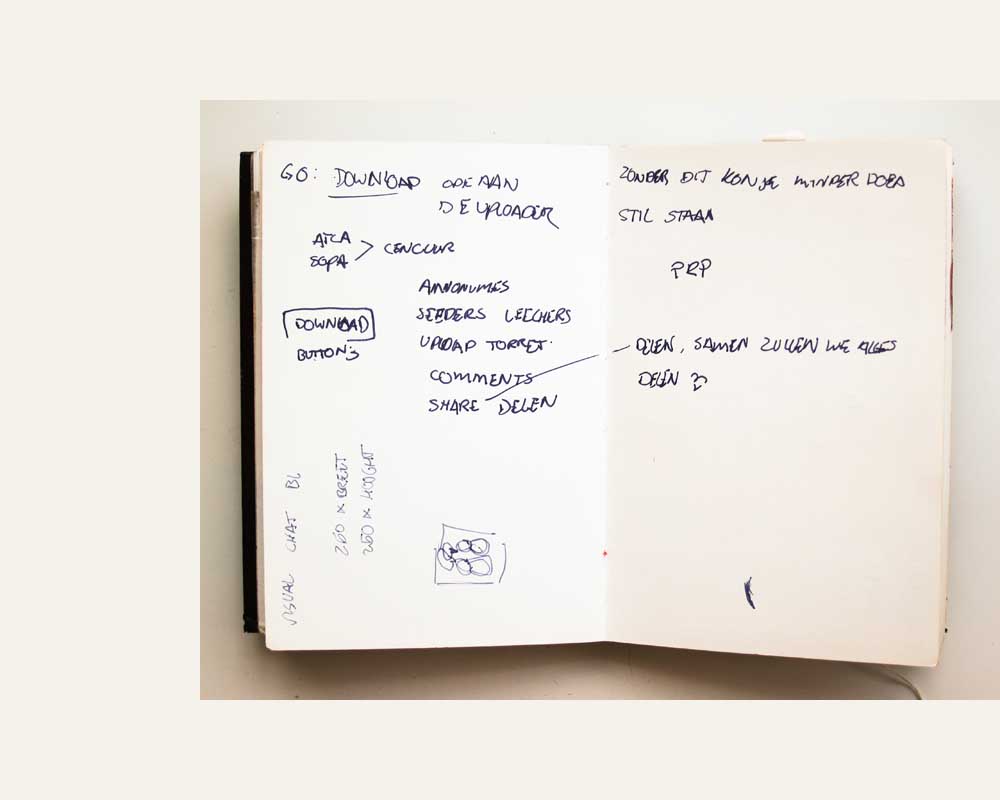 GO: DOWNLOAD ODE AAN
DE UPLOADER
ATCA
SOPA > CENCUUR
ANNONUMES
SEEDERS LEECHERS
DOWNLOAD
BUTTONS
UPLOAD TORRET.
COMMENTS
SHARE DELEN
VISUAL CHAT BL
260 X BREET
260 X HOOGHT
ZONDER DIT KON JE MINDER DOEN
STIL STAAN
PRP
DELEN, SAMEN ZULLEN WE ALLES
DELEN